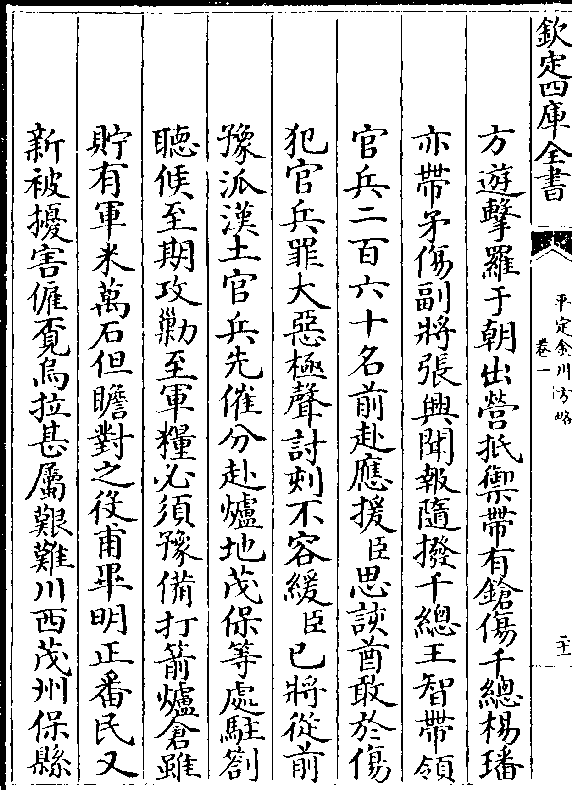 欽定四庫全書
平定金川方略
卷一
二十一
方遊擊羅于朝出營抵禦帶有鎗傷千總楊璠
亦帶矛傷副將張興聞報隨撥千總王智帶領
官兵二百六十名前赴應援臣思該酋敢於傷
犯官兵罪大惡極聲討刻不容緩臣已將從前
豫派漢土官兵先催分赴爐地茂保等處駐劄
聽候至期攻勦至軍糧必須豫備打箭爐倉雖
貯有軍米萬石但瞻對之役甫畢明正番民又
新被擾害僱覔烏拉甚屬艱難川西茂州保縣